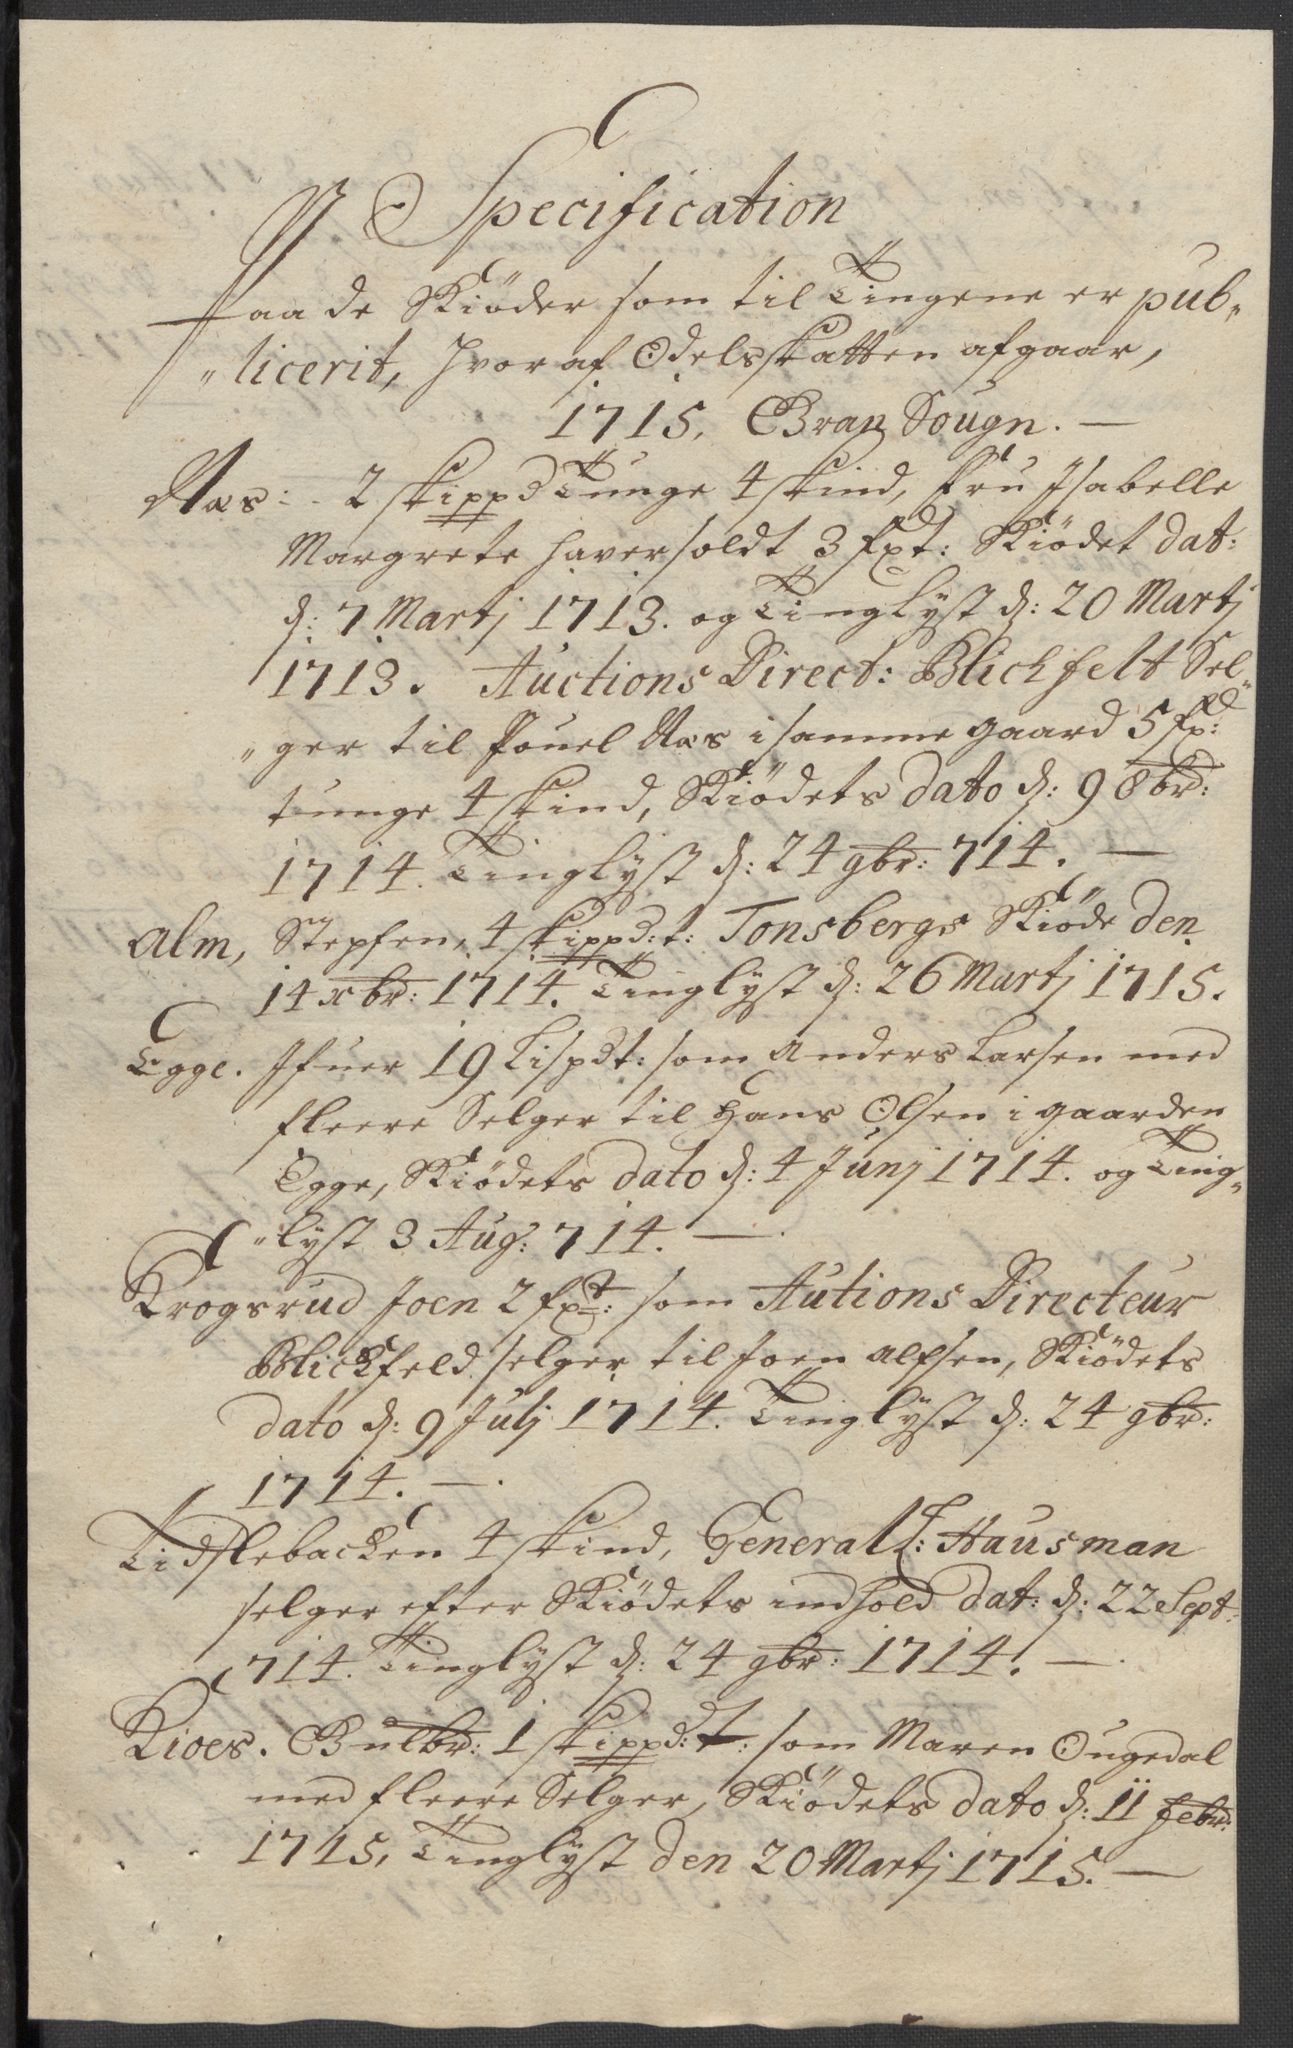 Specification
Paa de Skiøder som til Tingene er pub„
„licerit, hvor af Odelsskatten afgaar,
1715. Gran Sougn. —
Næs: 2 skippd Tunge 4 skind, Fru Isabelle
Margrete haver soldt 3 fxt: Skiødet dat:
d: 7 Martj 1713. og Tinglyst d: 20 Martj
1713. Auctions Direct: Blichfelt Sel„
„ger til Pouel Næs i samme gaard 5 fx:
tunge 4 skind, Skiødets dato d: 9 8br:
1714. Tinglyst d: 24 9br: 714. —
Alm, Stepfen, 4 skippd: t: Tonsbergs Skiøde den
14 xbr: 1714. Tinglyst d: 26 Martj 1715.
Egge. Ifuer 19 Lispdt: som Anders Larsen med
fleere Selger til Hans Olsen i gaarden
Egge, Skiødets dato d: 4 Junj 1714. og Ting„
„lyst 3 Aug: 714. —
Krogsrud Joen 2 fxt: som Autions Directeur
Blickfeld selger til Joen Alfsen, Skiødets
dato d: 9 Julj 1714. Tinglyst d: 24 9br:
1714. —
Tidslebacken 4 skind, General L: Hausman
selger efter Skiødets indhold dat: d: 22 Sept:
714. Tinglyst d: 24 9br: 1714. —
Kioes. Gulbr: 1 skippd: t: som Maren Ougedal
med fleere Selger, Skiødets dato d: 11 Febr:
1715, Tinglyst den 20 Martj 1715. —